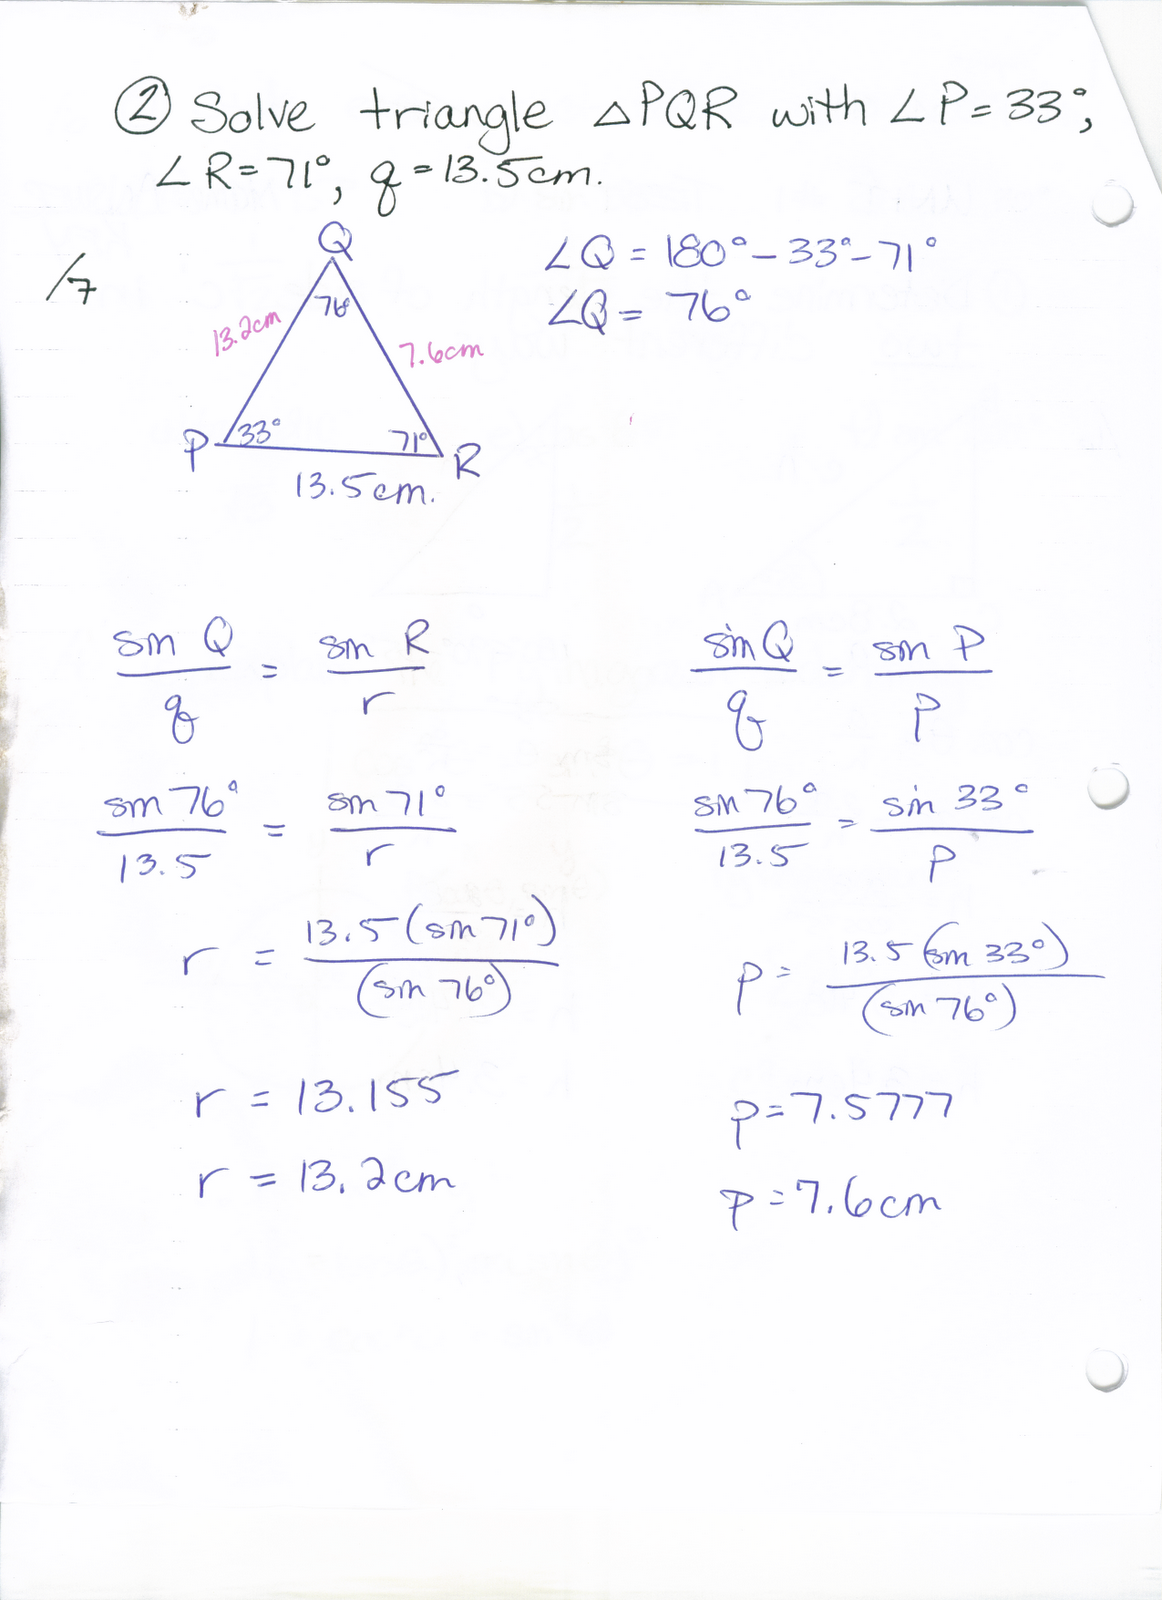 ② Solve triangle △PQR with ∠P=33°,
∠R=71°, q=13.5cm.
/7
Q
76°
13.2cm
7.6cm
P
33°
71°
R
13.5cm.
∠Q = 180°-33°-71°
∠Q = 76°
sin Q / q = sin R / r
sin 76° / 13.5 = sin 71° / r
r = 13.5(sin 71°) / (sin 76°)
r = 13.155
r = 13.2cm
sin Q / q = sin P / p
sin 76° / 13.5 = sin 33° / p
p = 13.5(sin 33°) / (sin 76°)
p=7.5777
p=7.6cm